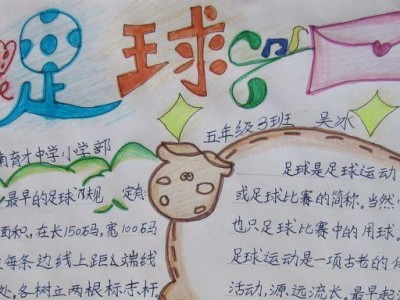 足球
五年级3班 吴冰
南育才中学小学部
最早的足球
定角
面积，在长150码，宽100码
每条边线上距4端线
处，各树立两根标志杆
足球是足球运动
或足球比赛的简称。当然
也只足球比赛中的用球。
足球运动是一项古老的体
活动，源远流长。最早起